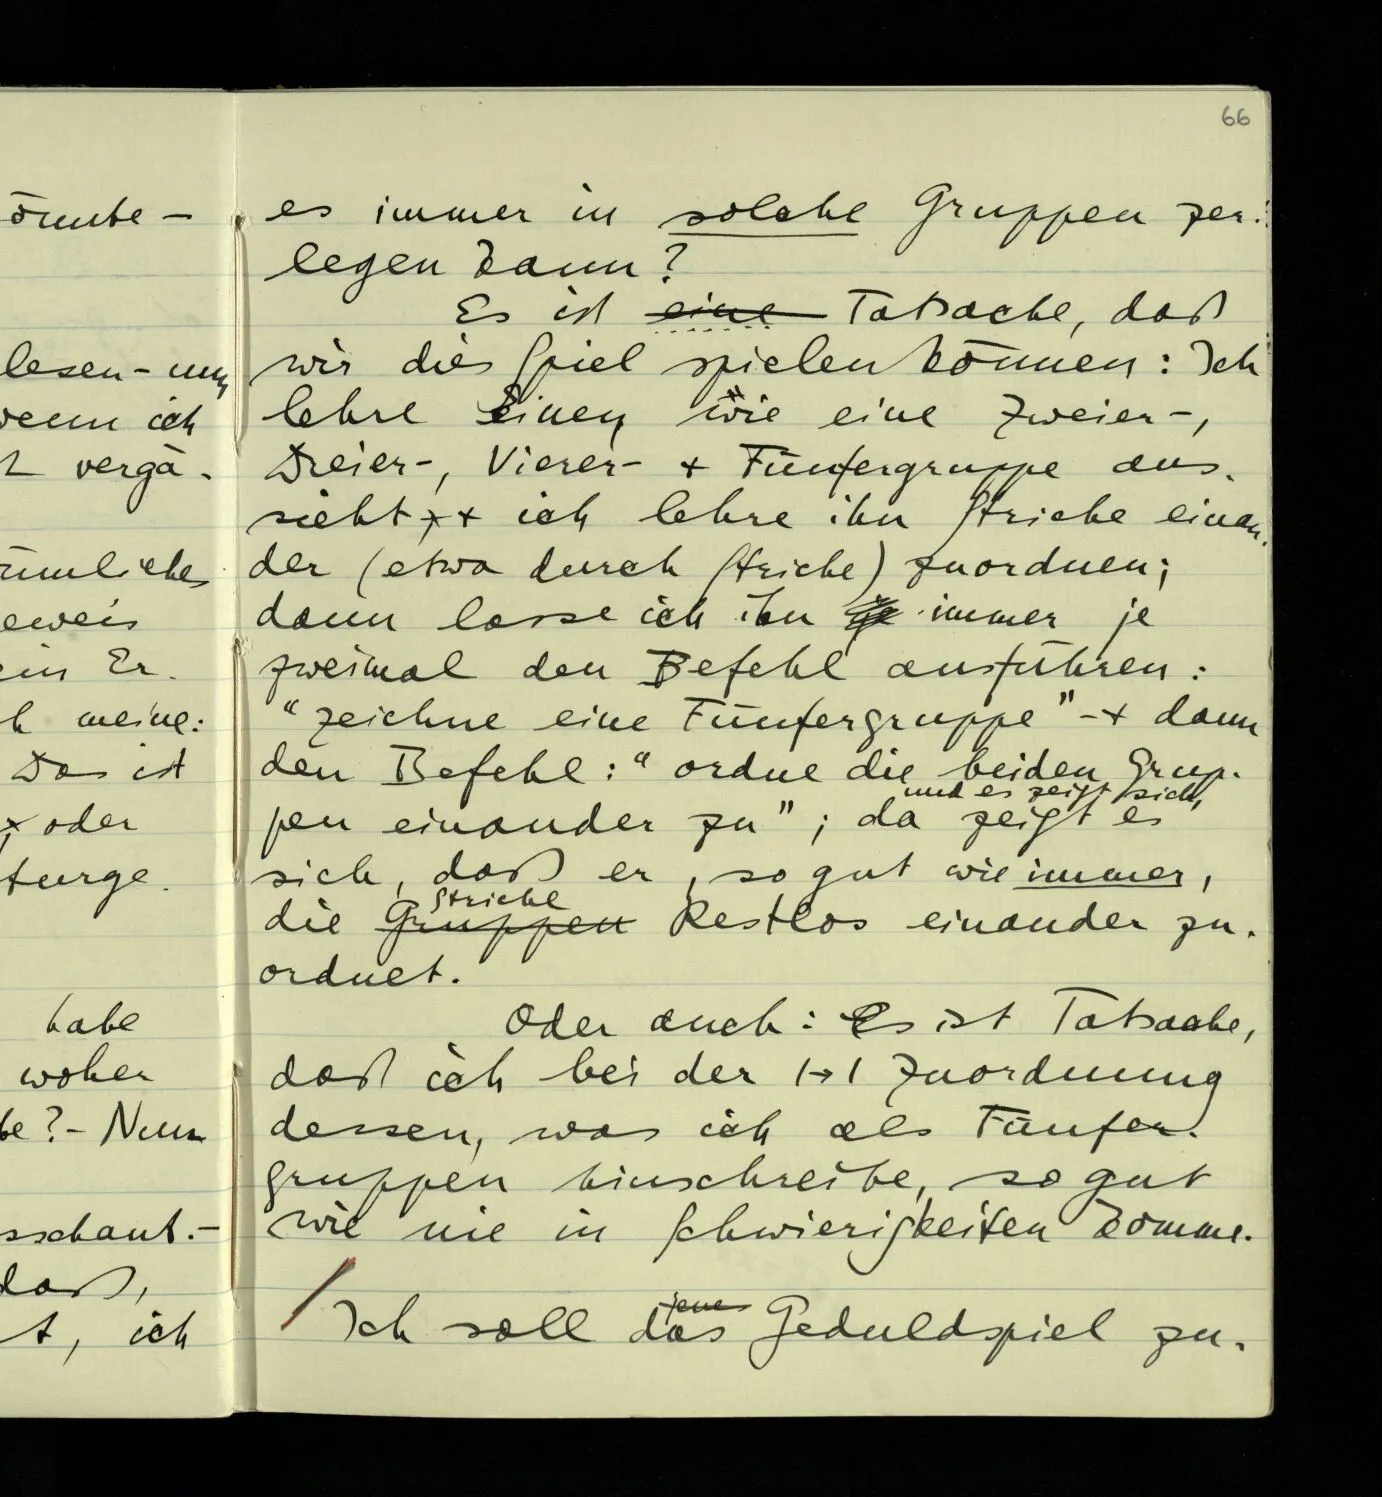 66
es immer in solche Gruppen zer-
legen kann?
Es ist eine Tatsache, daß
wir dies Spiel spielen können: Ich
lehre Einen wie eine Zweier-,
Dreier-, Vierer- + Fünfergruppe aus-
sieht, + ich lehre ihn Striche einan-
der (etwa durch Striche) zuordnen;
dann lasse ich ihn immer je
zweimal den Befehl ausführen:
“zeichne eine Fünfergruppe” - + dann
den Befehl: “ordne die beiden Grup-
und es zeigt sich,
pen einander zu”; da zeigt es
sich, daß er, so gut wie immer,
Striche
die Gruppen Restlos einander zu-
ordnet.
Oder auch: Es ist Tatsache,
daß ich bei der 1→1 Zuordnung
dessen, was ich als Fünfer-
gruppen hinschreibe, so gut
wie nie in Schwierigkeiten komme.
jenes
/ Ich soll das Geduldspiel zu-
önnte –
lesen – und
wenn ich
vergä-
äumliches
eweis
ein Er-
h meine:
Das ist
oder
furge-
habe
woher
be? – Nun
sschaut. –
daß,
t, ich